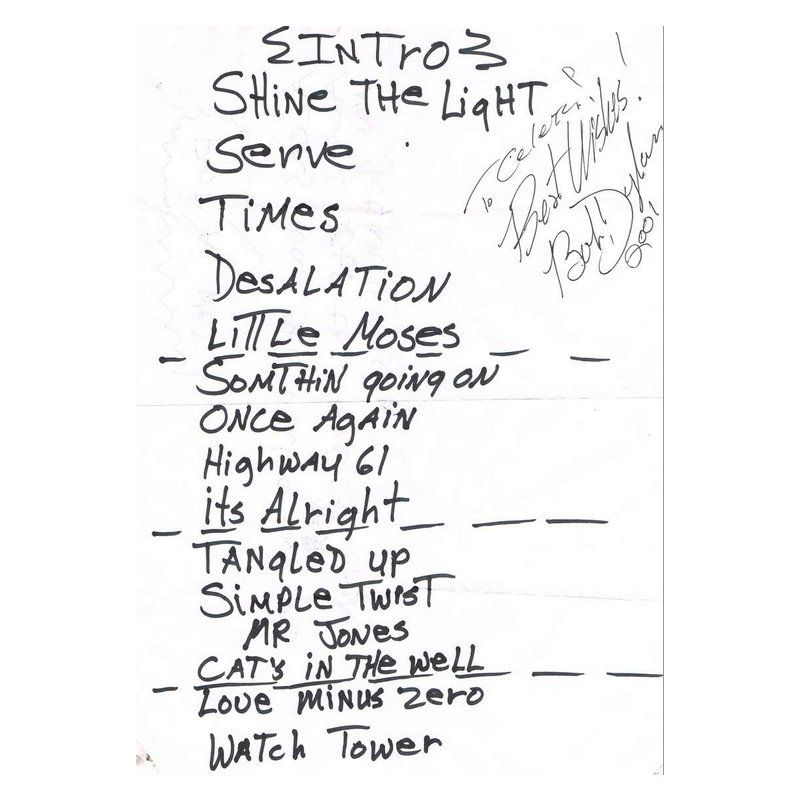 {INTrO}
SHiNe THe LigHT
Serve
TiMes
DesALATiON
LiTTLe Moses
SOMTHiN going ON
ONCe AgAiN
HighwAy 61
its Alright
TANgLeD up
SiMpLe TwisT
MR JoNes
CATs iN THe well
Love MiNus Zero
WATch Tower
To
Best Wishes!
Bob Dylan
2001